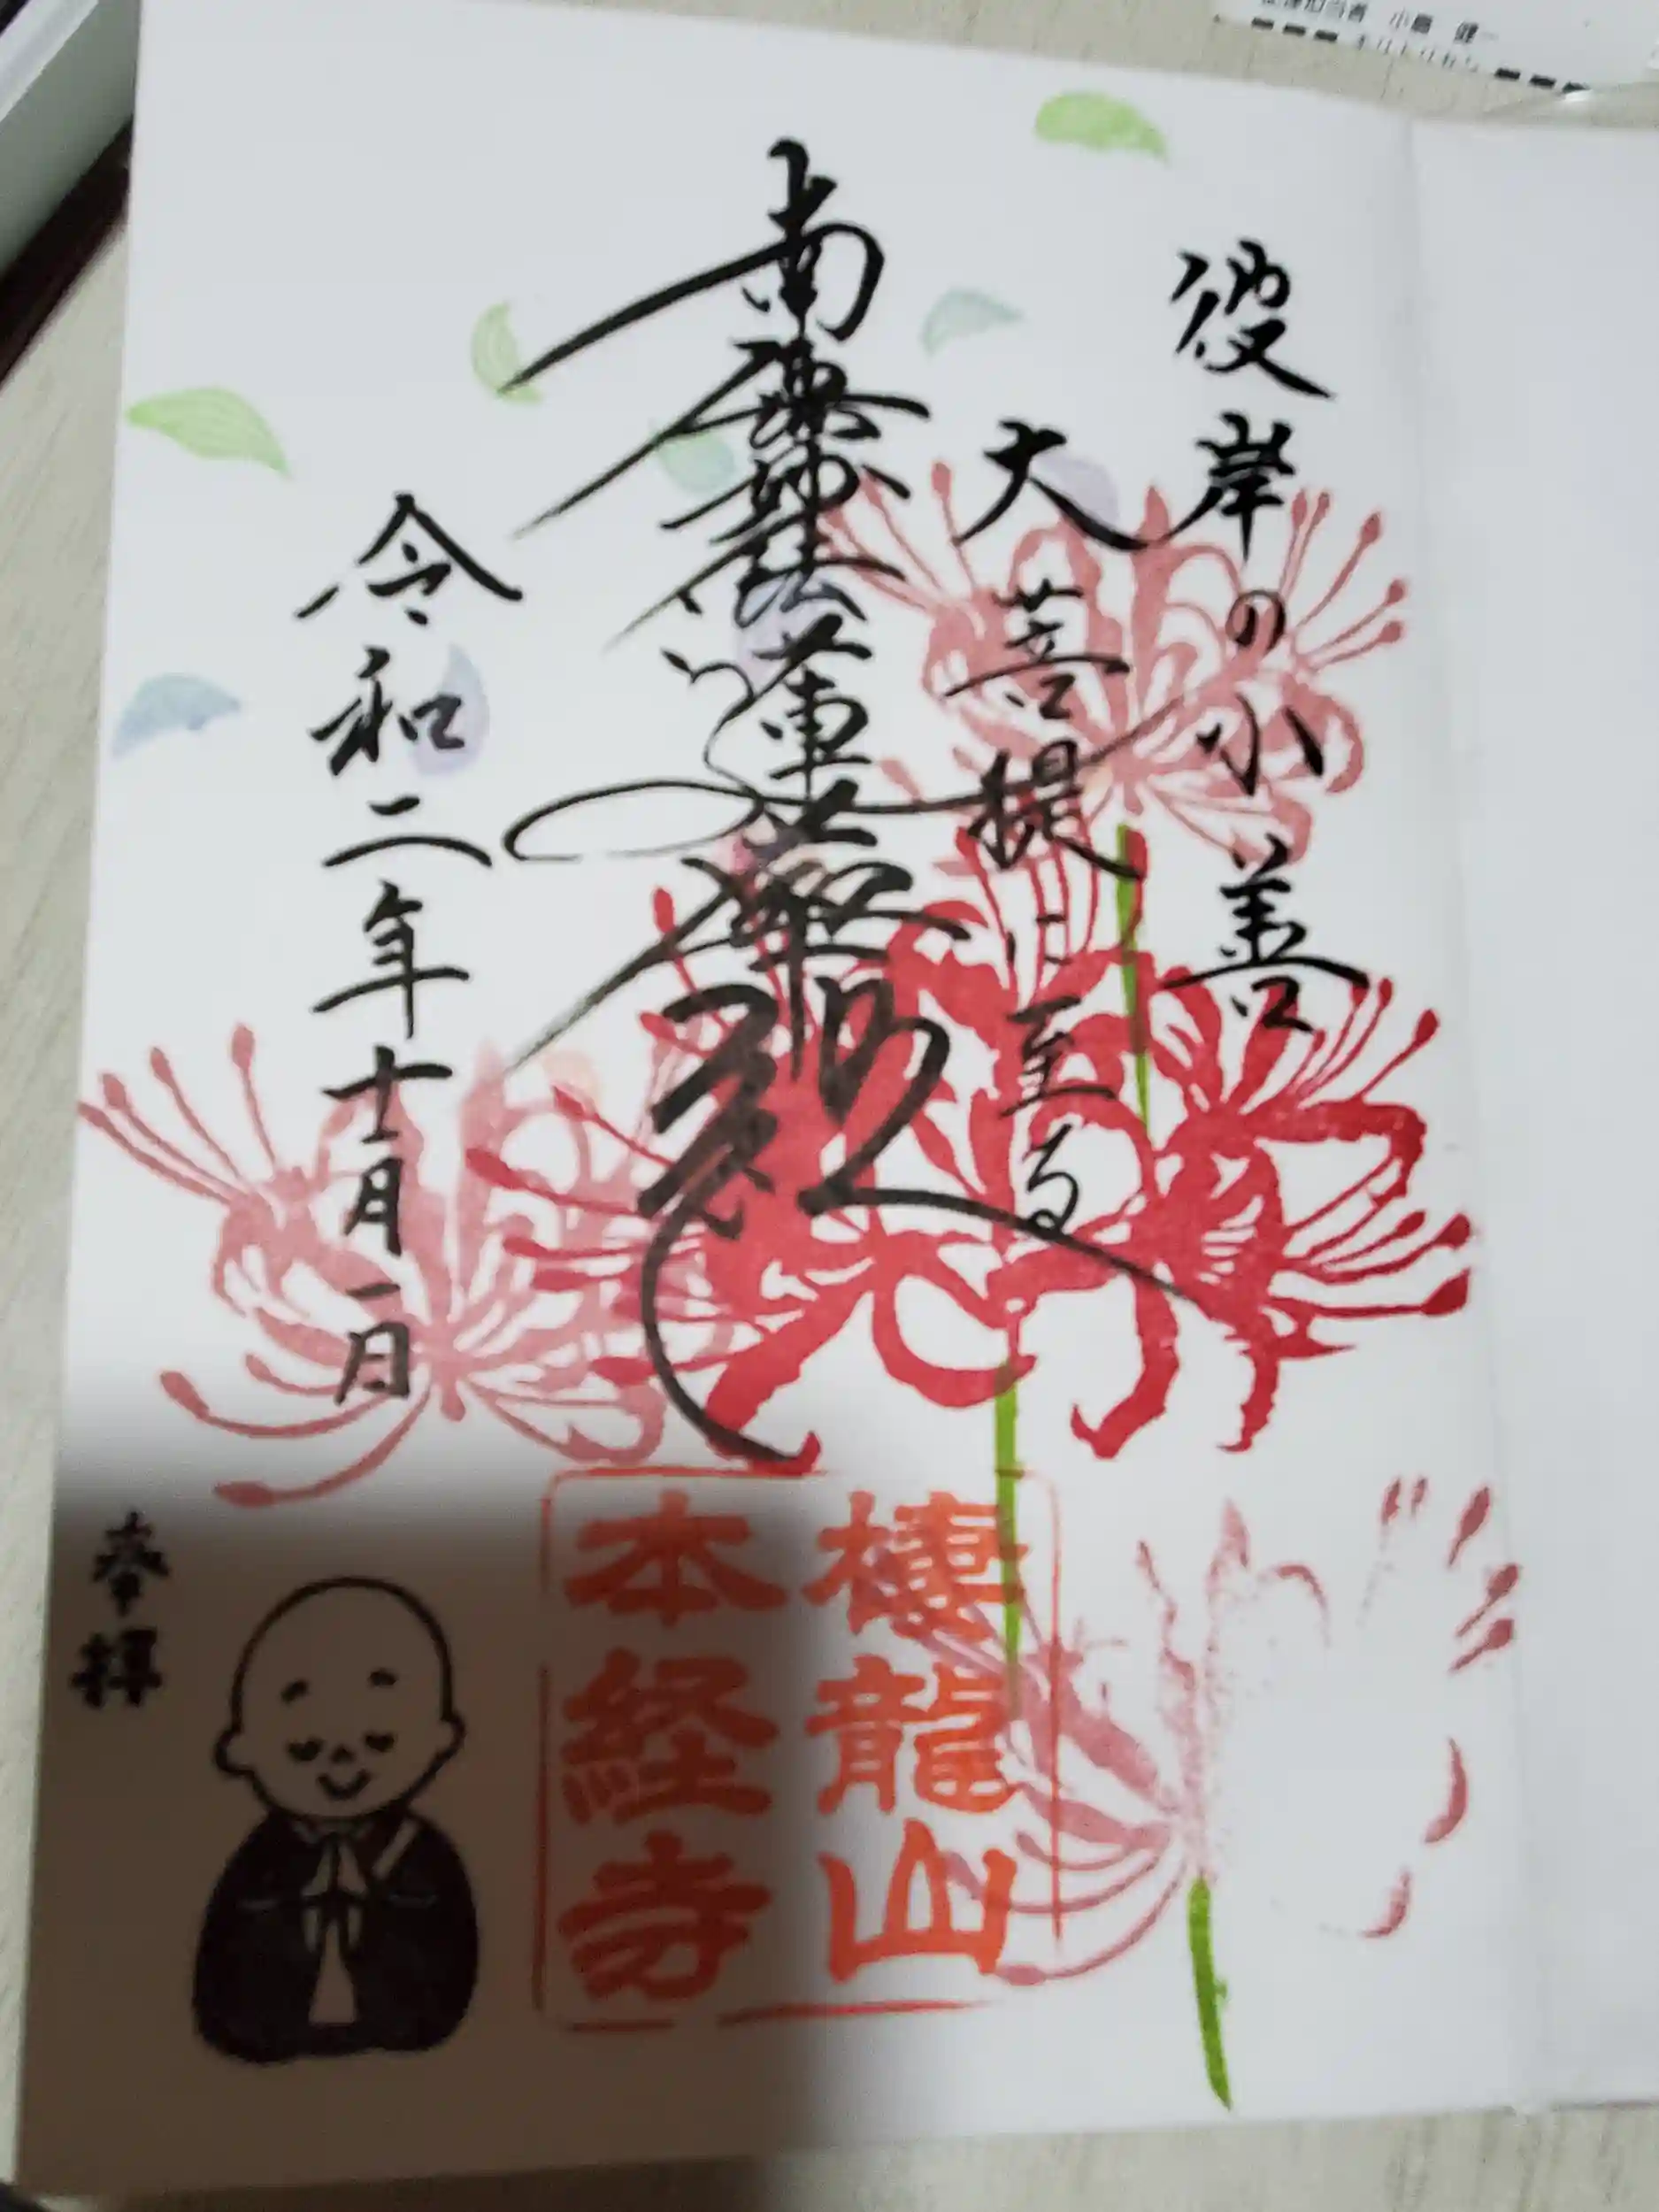 彼岸の小善
大菩提に至る
南無妙法蓮華経
令和二年十一月一日
奉拝
棲龍山
本経寺
担当者 小島 健一